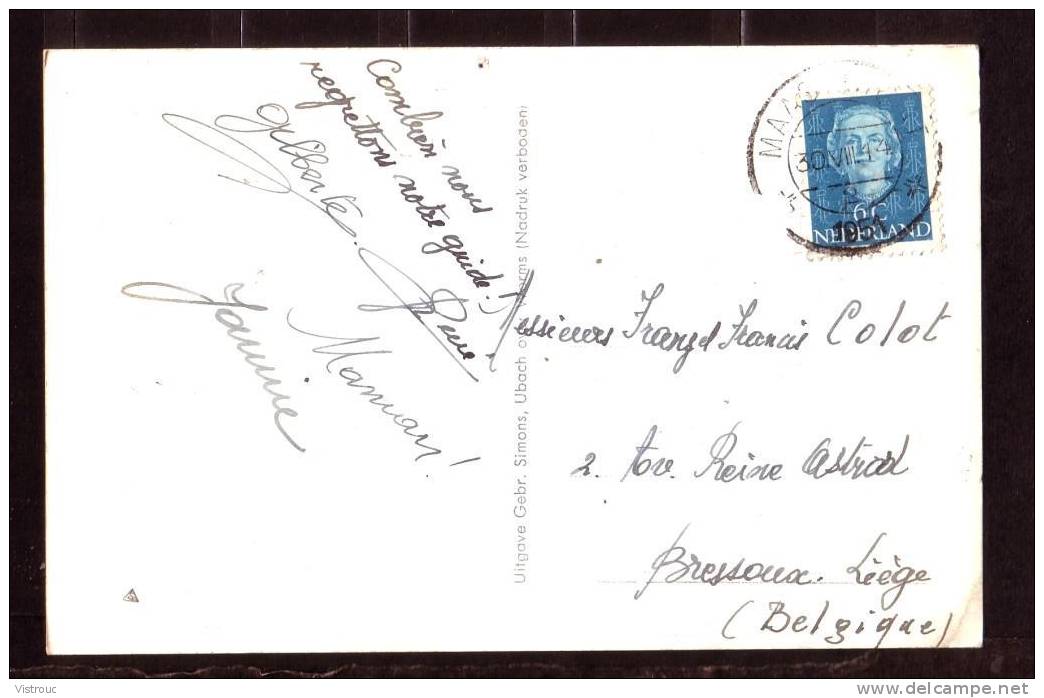 Combien nous
regrettons notre guide!
Gilberte.
Maman!
Jannine
Uitgave Gebr. Simons, Ubach over Worms (Nadruk verboden)
30 VIII. 14
1951
6 C
NEDERLAND
Messieurs Franz et Francis Colot
2. Av. Reine Astrid
Bressoux. Liège
(Belgique)
Vistrouc
delcampe.net